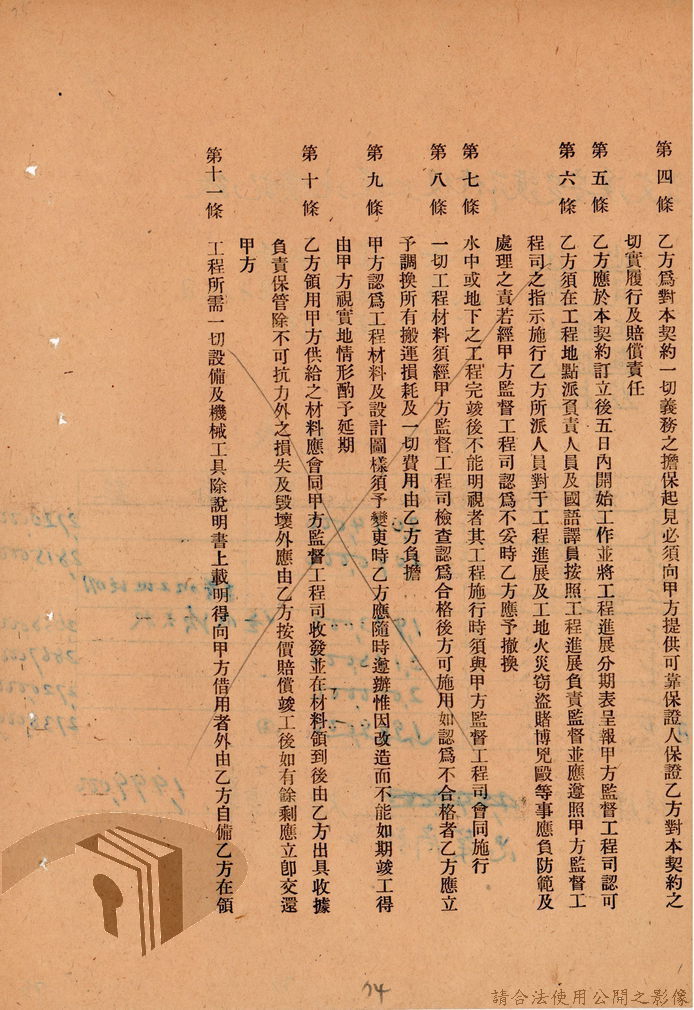 第四條 乙方爲對本契約一切義務之擔保起見必須向甲方提供可靠保證人保證乙方對本契約之
切實履行及賠償責任
第五條 乙方應於本契約訂立後五日內開始工作並將工程進展分期表呈報甲方監督工程司認可
第六條 乙方須在工程地點派負責人員及國語譯員按照工程進展負責監督並應遵照甲方監督工
程司之指示施行乙方所派人員對于工程進展及工地火災窃盜賭博兇毆等事應負防範及
處理之責若經甲方監督工程司認爲不妥時乙方應予撤換
第七條 水中或地下之工程完竣後不能明視者其工程施行時須與甲方監督工程司會同施行
第八條 一切工程材料須經甲方監督工程司檢查認爲合格後方可施用如認爲不合格者乙方應立
予調換所有搬運損耗及一切費用由乙方負擔
第九條 甲方認爲工程材料及設計圖樣須予變更時乙方應隨時遵辦惟因改造而不能如期竣工得
由甲方視實地情形酌予延期
第十條 乙方領用甲方供給之材料應會同甲方監督工程司收發並在材料領到後由乙方出具收據
負責保管除不可抗力外之損失及毀壞外應由乙方按價賠償竣工後如有餘剩應立卽交還
甲方
第十一條 工程所需一切設備及機械工具除說明書上載明得向甲方借用者外由乙方自備乙方在領
74
請合法使用公開之影像